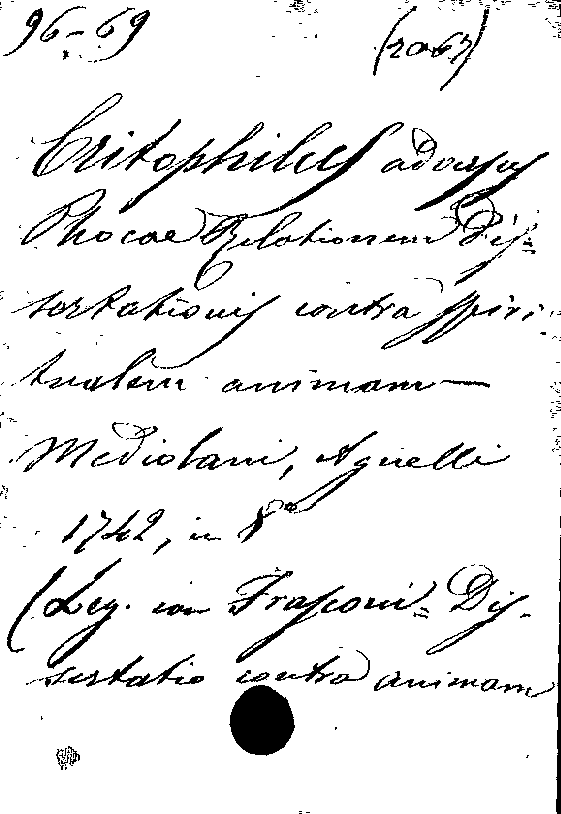 96-69 (2067)
Critophilus adversus
Phocae Relationem Dis=
sertationis contra spiri-
tualem animam —
Mediolani, Agnelli
1742, in 8°
(Leg. con Frasconi= Dis-
sertatio contra animam